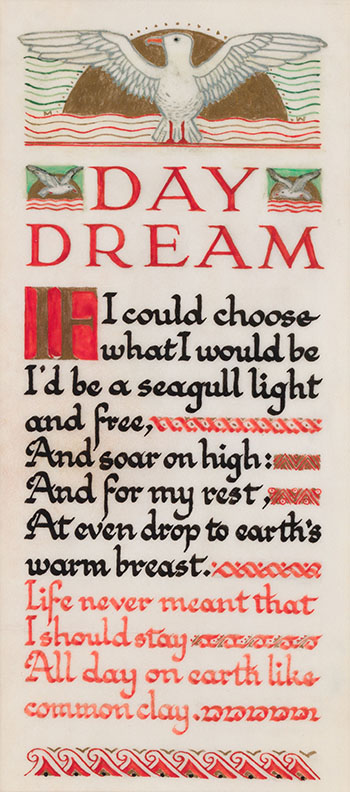 M W
DAY
DREAM
IF I could choose
what I would be
I'd be a seagull light
and free,
And soar on high:
And for my rest,
At even drop to earth's
warm breast.
Life never meant that
I should stay
All day on earth like
common clay.